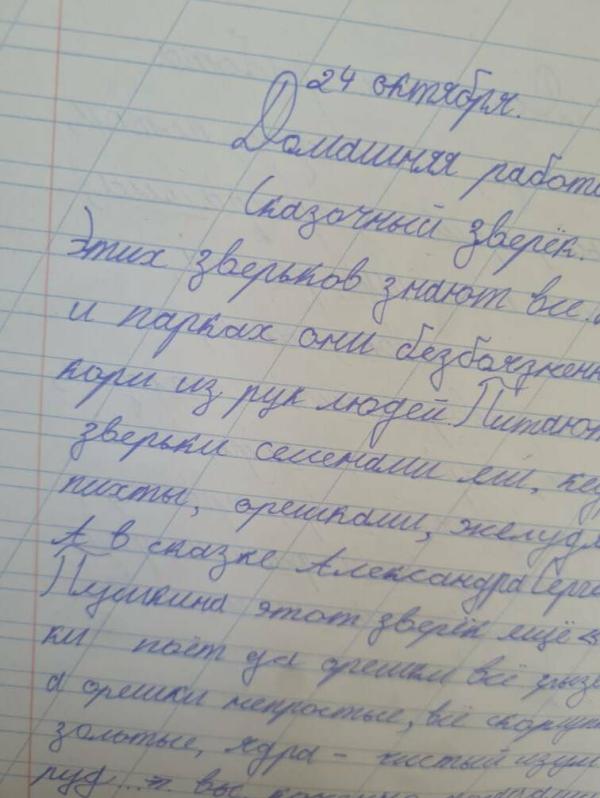 24 октября.
Домашняя работа
Сказочный зверёк.
Этих зверьков знают все.
и парках они безбоязненн
кори из рук людей Питают
зверьки семенами ели, кед
пихты, орешками, желудя
А в сказке Александра Серге
Пушкина этот зверёк ещё
ки поёт да орешки всё грызё
а орешки непростые, всё скорлуп
золотые, ядра - чистый изум
руд